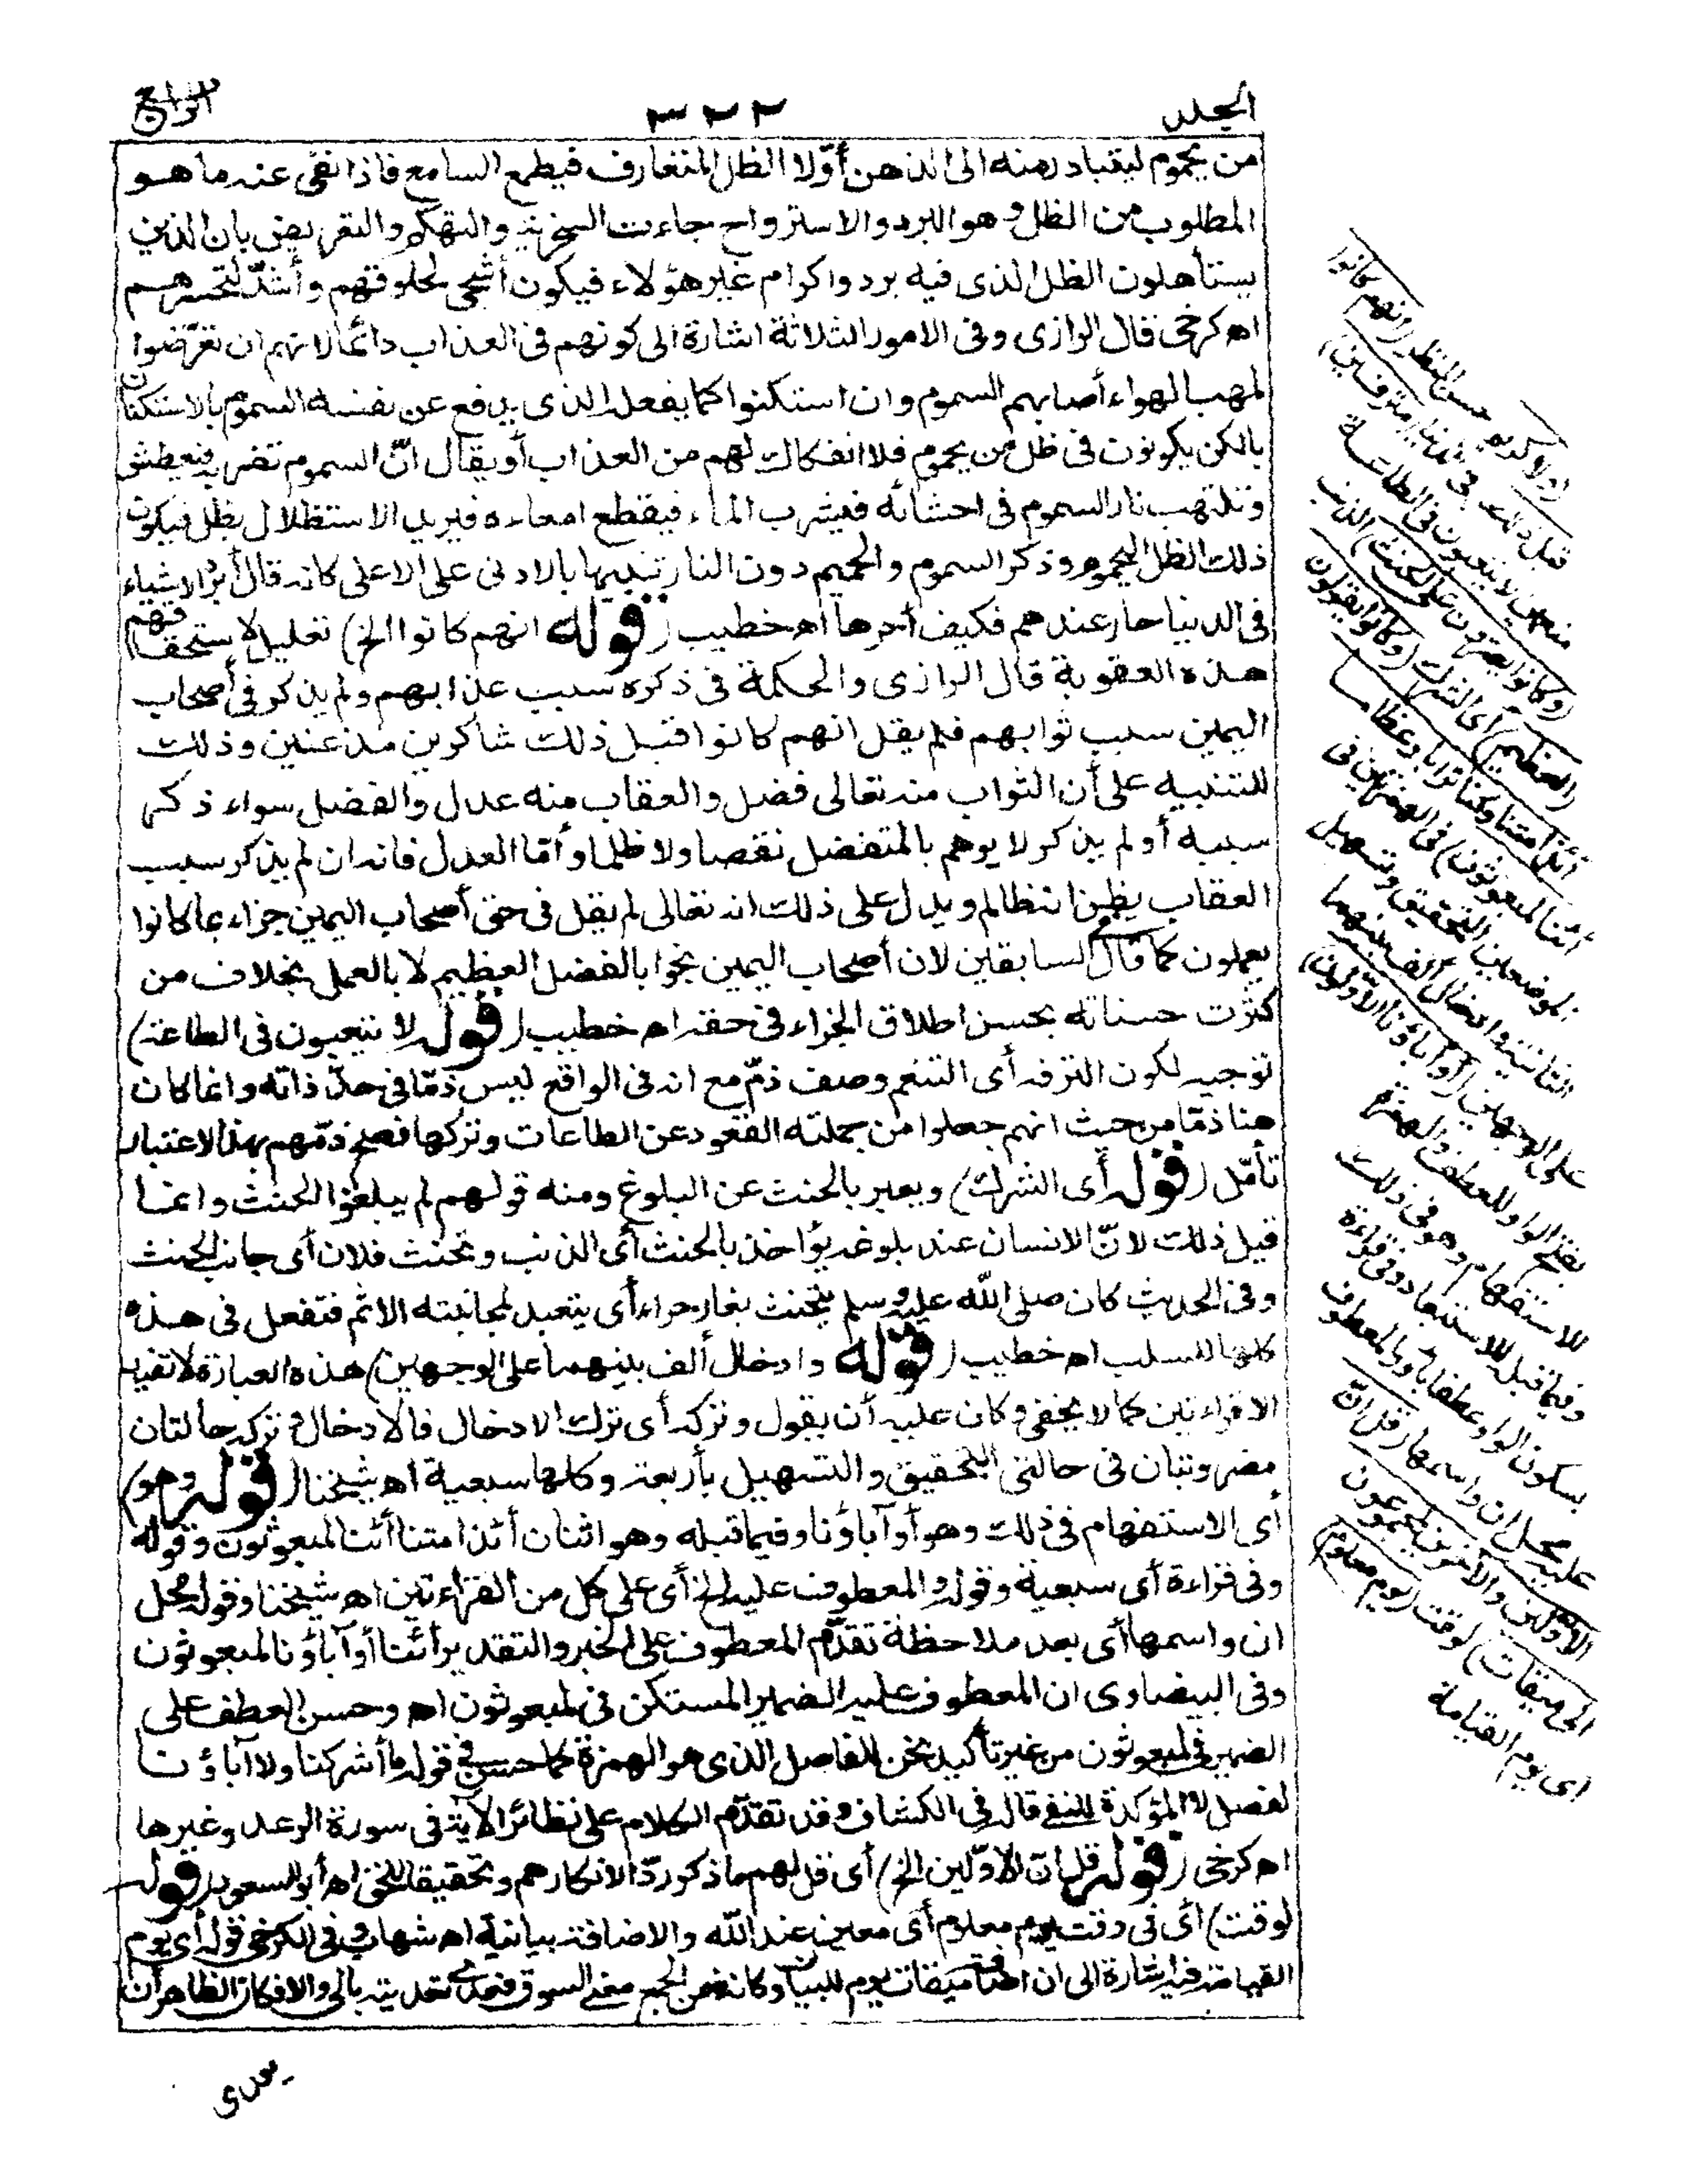 المجلد
٣٢٢
الرابع
من يحموم ليتبادر منه الى الذهن أوّلا الظل المتعارف فيطمع السامع فاذا نفى عنه ما هو
المطلوب من الظل وهو البرد والاسترواح جاءت السخرية والتهكم والتعريض بان الذين
يستأهلون الظل الذى فيه برد واكرام غير هؤلاء فيكون أشجى لحلوقهم وأشدّ لتحسرهم
اه كرخى قال الرازى وفى الامور الثلاثة اشارة الى كونهم فى العذاب دائما لانهم ان تعرّضوا
لمهب الهواء أصابهم السموم وان استكنوا كما يفعل الذى يدفع عن نفسه السموم بالاستكنان
بالكن يكونون فى ظل من يحموم فلا انفكاك لهم من العذاب أو يقال انّ السموم تضربه فيعطش
وتلتهب نار السموم فى احشائه فيشرب الماء فيقطع امعاءه فيريد الاستظلال بظل فيكون
ذلك الظل اليحموم وذكر السموم والحميم دون النار تنبيها بالادنى على الاعلى كانه قال أبرد الاشياء
فى الدنيا حار عندهم فكيف أحرها اه خطيب (قوله انهم كانوا الخ) تعليل لاستحقاقهم
هذه العقوبة قال الرازى والحكمة فى ذكره سبب عذابهم ولم يذكر فى أصحاب
اليمين سبب ثوابهم فلم يقل انهم كانوا قبل ذلك شاكرين مذعنين وذلك
للتنبيه على أن الثواب منه تعالى فضل والعقاب منه عدل والفضل سواء ذكر
سببه أو لم يذكر لا يوهم بالمتفضل نقصا ولا ظلما وأمّا العدل فانه ان لم يذكر سبب
العقاب يظن انه ظالم ويدل على ذلك انه تعالى لم يقل فى حق أصحاب اليمين جزاء بما كانوا
يعملون كما قال فى السابقين لان أصحاب اليمين نجوا بالفضل العظيم لا بالعمل بخلاف من
كثرت حسناته يحسن اطلاق الجزاء فى حقه اه خطيب (قوله لا يتعبون فى الطاعة)
توجيه لكون الترفه أى التنعم وصف ذمّ مع انه فى الواقع ليس ذمّا فى حدّ ذاته وانما كان
هنا ذمّا من حيث انهم جعلوا من جملته القعود عن الطاعات وتركها فصح ذمّهم بهذا الاعتبار
تأمّل (قوله أى الشرك) ويعبر بالحنث عن البلوغ ومنه قولهم لم يبلغوا الحنث وانما
قيل ذلك لانّ الانسان عند بلوغه يؤاخذ بالحنث أى الذنب وتحنث فلان أى جانب الحنث
وفى الحديث كان صلى الله عليه وسلم يتحنث بغار حراء أى يتعبد لمجانبته الاثم فتفعل فى هذه
كلها للسلب اه خطيب (قوله وادخال ألف بينهما على الوجهين) هذه العبارة لا تفيد
الا قراءتين كما لا يخفى وكان عليه أن يقول وتركه أى ترك الادخال فالادخال وتركه حالتان
مضروبتان فى حالتى التحقيق والتسهيل بأربعة وكلها سبعية اه شيخنا (قوله وهو)
أى الاستفهام فى ذلك وهو أو آباؤنا وفيما قبله وهو اثنان أئذا متنا أئنا لمبعوثون وقوله
وفى قراءة أى سبعية وقوله والمعطوف عليه الخ أى على كل من القراءتين اه شيخنا وقوله محل
ان واسمها أى بعد ملاحظة تقدّم المعطوف على الخبر والتقدير أئنا أو آباؤنا لمبعوثون
وفى البيضاوى ان المعطوف عليه الضمير المستكن فى لمبعوثون اه وحسن العطف على
الضمير فى لمبعوثون من غير تأكيد بنحن للفاصل الذى هو الهمزة كما حسن فى قوله ما أشركنا ولا آباؤنا
لفصل لا المؤكدة للنفى قاله فى الكشاف وقد تقدّم الكلام على نظائر الآية فى سورة الرعد وغيرها
اه كرخى (قوله قل انّ الاوّلين الخ) أى قل لهم ما ذكر ردّا لانكارهم وتحقيقا للحق اه أبو السعود (قوله
لوقت) أى فى وقت يوم معلوم أى معين عند الله والاضافة بيانية اه شهاب وفى الكرخى قوله أى يوم
القيامة فيه اشارة الى ان اضافة ميقات يوم للبيان وكانه ضمن الجمع معنى السوق فعدّى تعديته بالى والا فكان الظاهر أن
(ولا كريم) حسن المنظر (انهم كانوا
قبل ذلك) فى الدنيا (مترفين)
منعمين لا يتعبون فى الطاعة
(وكانوا يصرّون على الحنث) الذنب
(العظيم) أى الشرك (وكانوا يقولون
أئذا متنا وكنا ترابا وعظاما
أئنا لمبعوثون) فى الهمزتين فى
الموضعين التحقيق وتسهيل
الثانية وادخال ألف بينهما
على الوجهين (أو آباؤنا الاوّلون)
بفتح الواو للعطف والهمزة
للاستفهام وهو فى ذلك
وفيما قبله للاستبعاد وفى قراءة
بسكون الواو عطفا بأو والمعطوف
عليه محل ان واسمها (قل انّ
الاوّلين والآخرين لمجموعون
الى ميقات) لوقت (يوم معلوم)
اى يوم القيامة